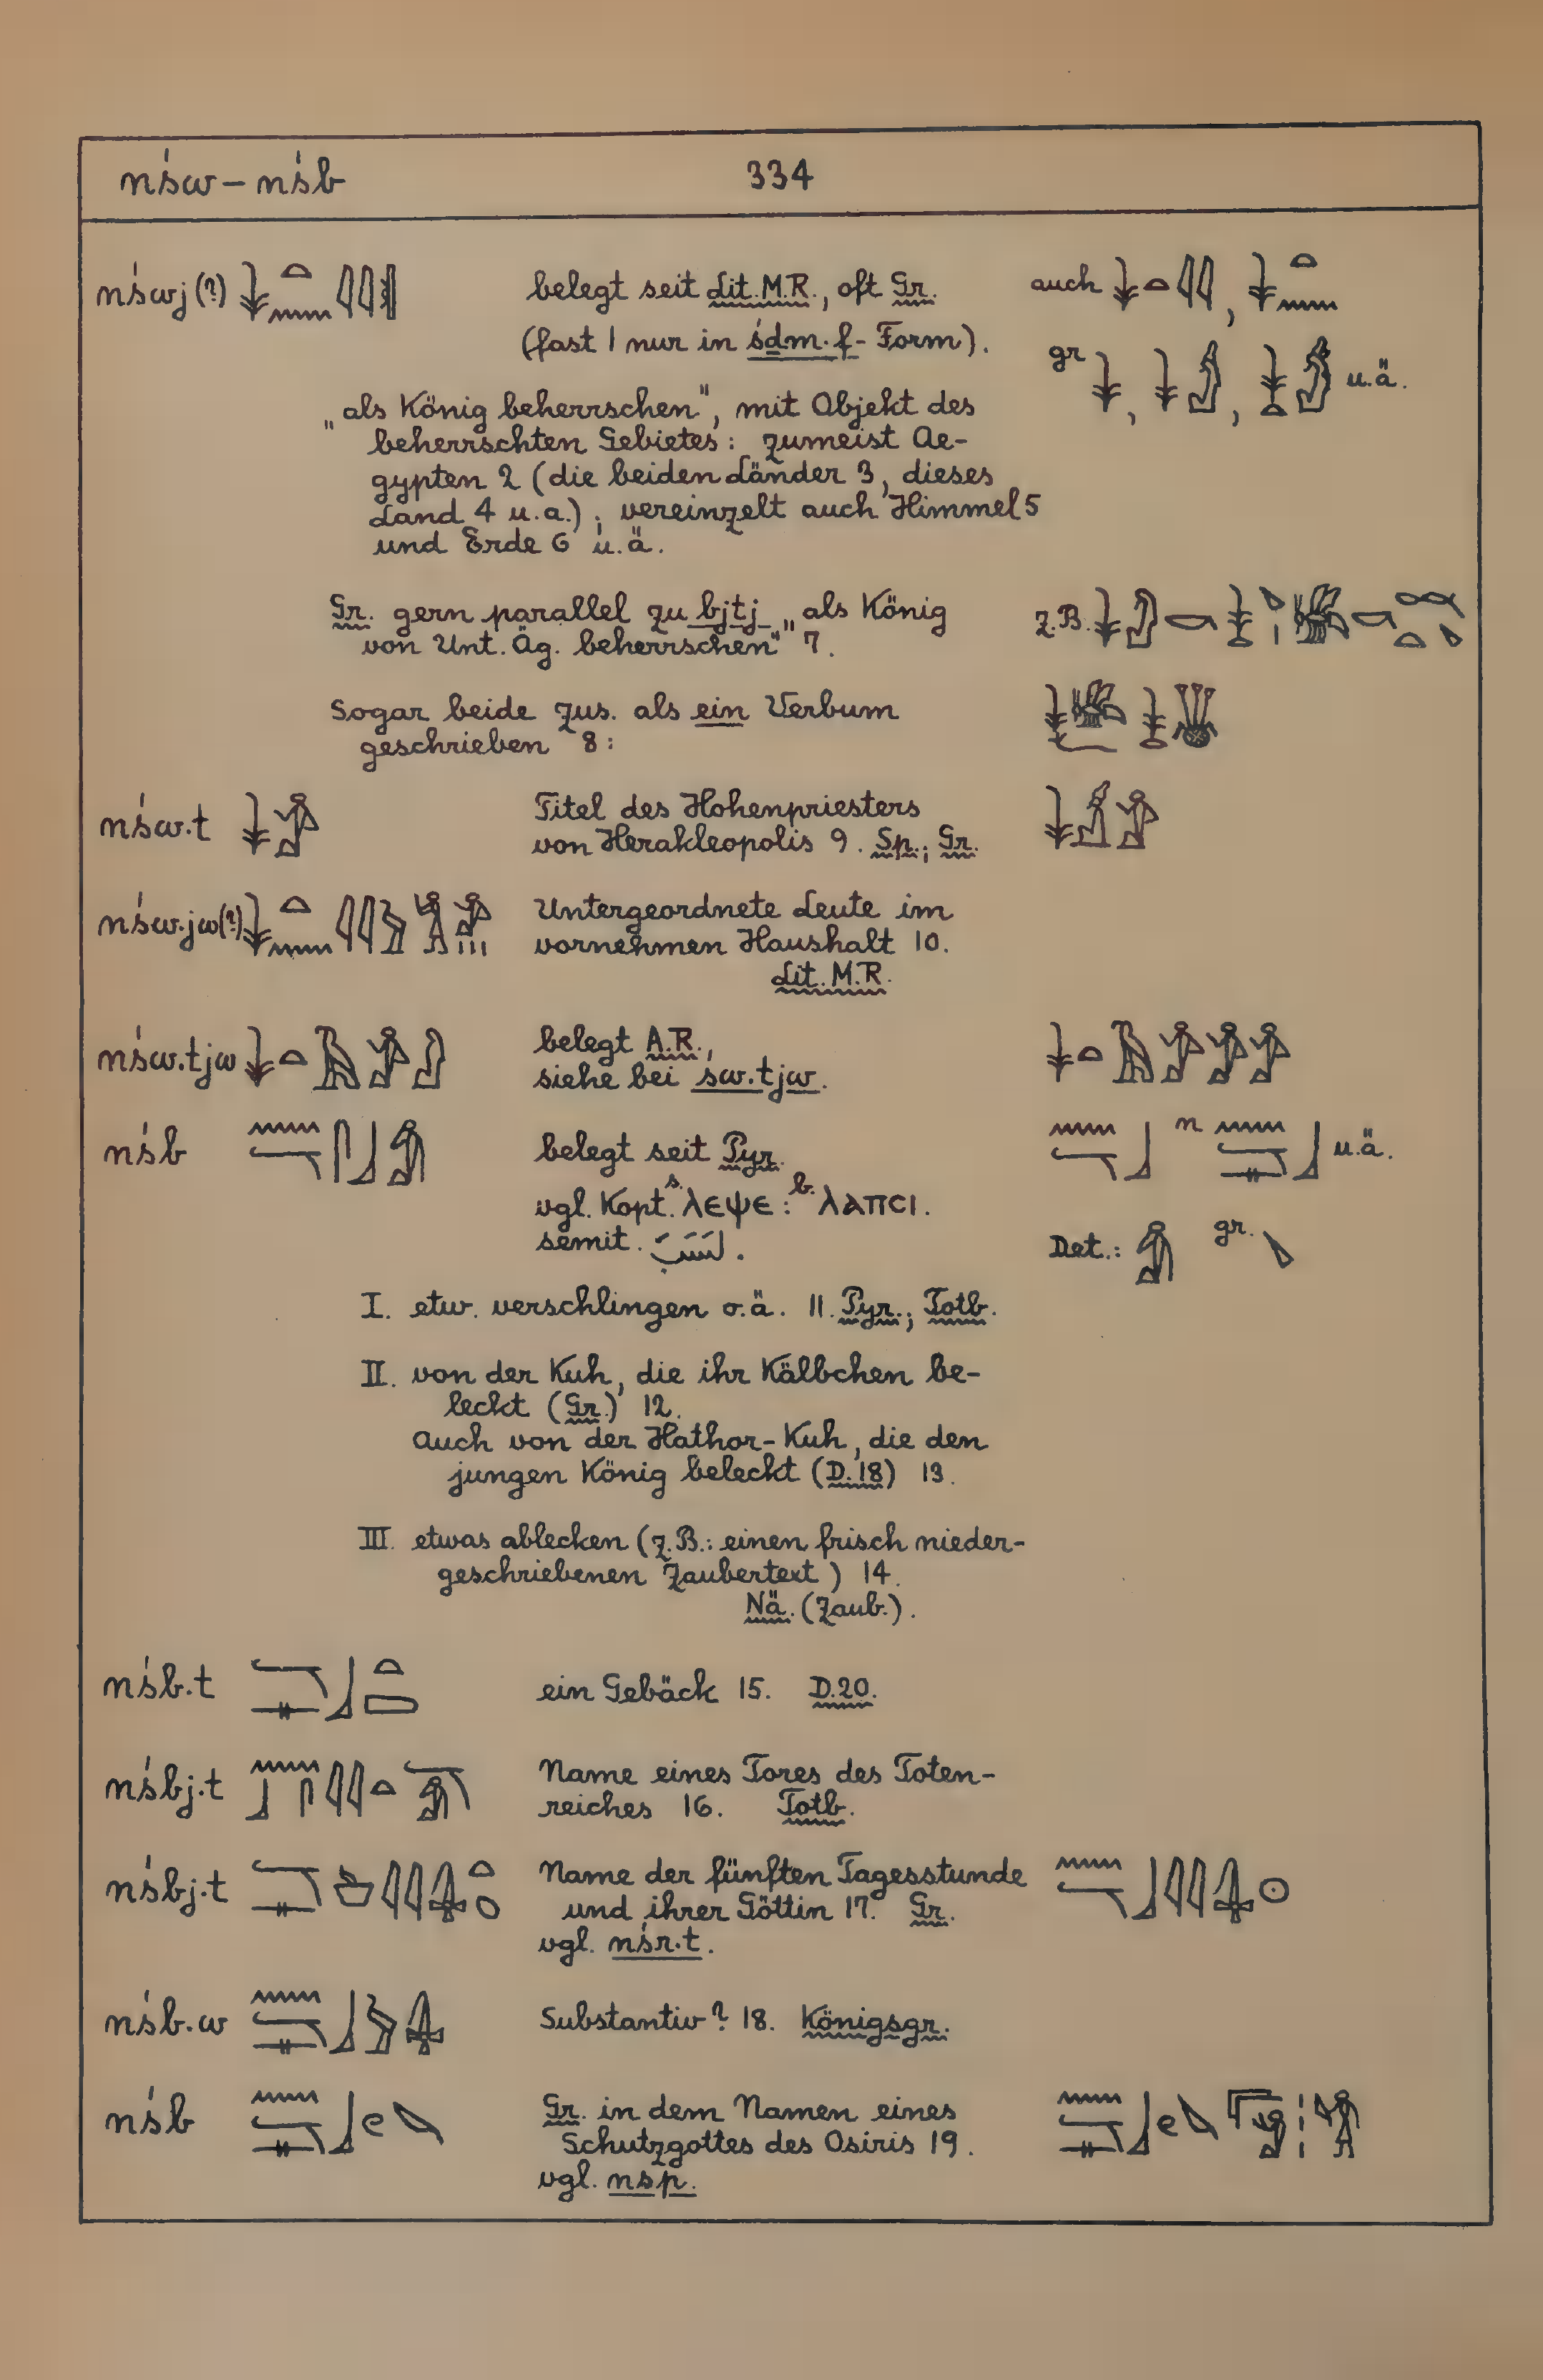 nśw – nśb 334
nśwj (?) belegt seit Lit. M.R., oft Gr. auch
(fast 1 nur in śḏm·f - Form). gr , , u.ä.
„als König beherrschen", mit Objekt des
beherrschten Gebietes: zumeist Ae-
gypten 2 (die beiden Länder 3, dieses
Land 4 u.a.); vereinzelt auch Himmel 5
und Erde 6 u.ä.
Gr. gern parallel zu bjtj „als König z.B.
von Unt. Äg. beherrschen" 7.
Sogar beide zus. als ein Verbum
geschrieben 8:
nśw.t Titel des Hohenpriesters
von Herakleopolis 9. Sp.; Gr.
nśw.jw(?) Untergeordnete Leute im
vornehmen Haushalt 10.
Lit. M.R.
nśw.tjw belegt A.R.,
siehe bei św.tjw.
nśb belegt seit Pyr. n u.ä.
vgl. Kopt. s. ⲗⲉⲯⲉ : b. ⲗⲁⲡⲥⲓ.
semit. لَسَبَ. Det.: gr.
I. etw. verschlingen o.ä. 11. Pyr.; Totb.
II. von der Kuh, die ihr Kälbchen be-
leckt (Gr.) 12.
Auch von der Hathor-Kuh, die den
jungen König beleckt (D. 18) 13.
III. etwas ablecken (z.B.: einen frisch nieder-
geschriebenen Zaubertext) 14.
Nä. (Zaub.).
nśb.t ein Gebäck 15. D.20.
nśbj.t Name eines Tores des Toten-
reiches 16. Totb.
nśbj.t Name der fünften Tagesstunde
und ihrer Göttin 17. Gr.
vgl. nśr.t.
nśb.w Substantiv? 18. Königsgr.
nśb Gr. in dem Namen eines
Schutzgottes des Osiris 19.
vgl. nsp.